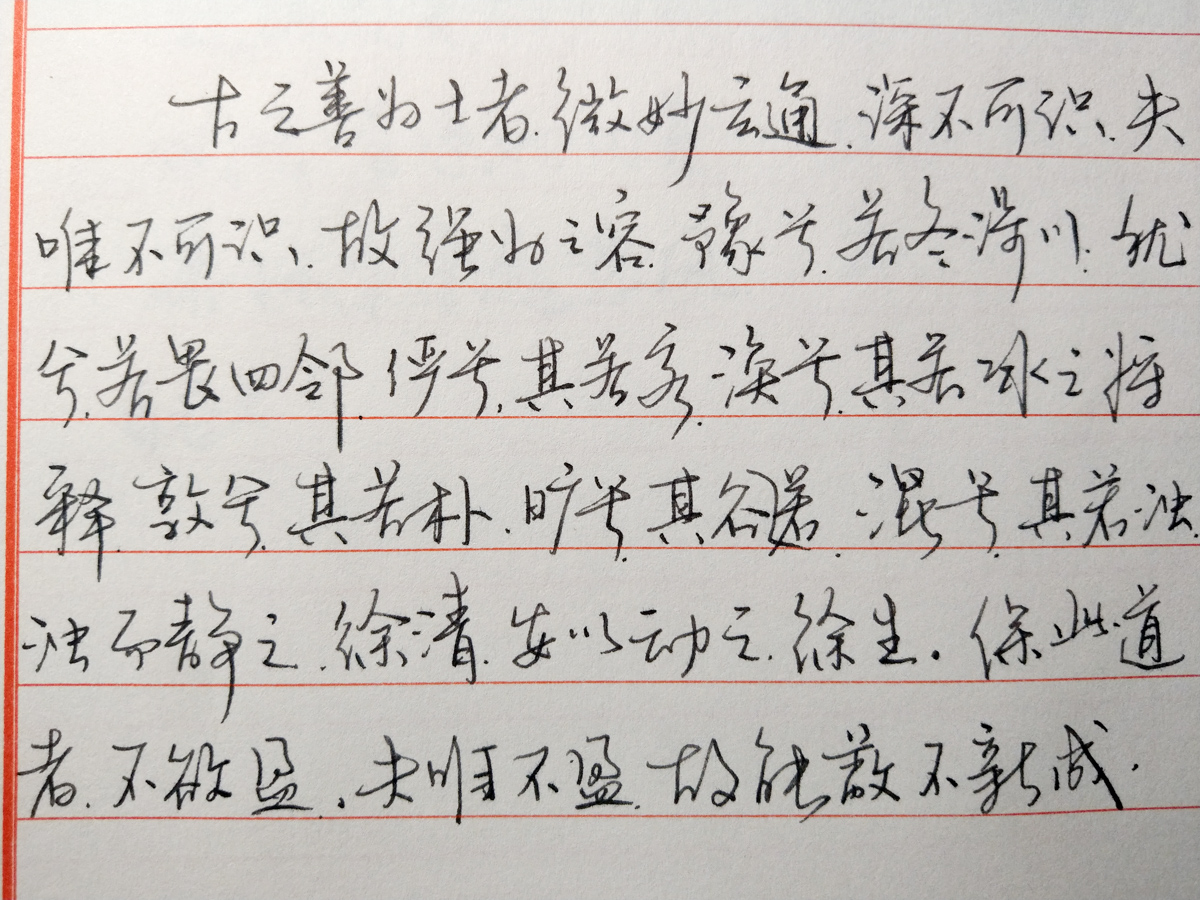 古之善为士者.微妙玄通.深不可识.夫
唯不可识.故强为之容.豫兮.若冬涉川.犹
兮.若畏四邻.俨兮.其若客.涣兮.其若冰之将
释.敦兮.其若朴.旷兮.其若谷.混兮.其若浊.
浊而静之.徐清.安以动之.徐生.保此道
者.不欲盈.夫唯不盈.故能蔽不新成.